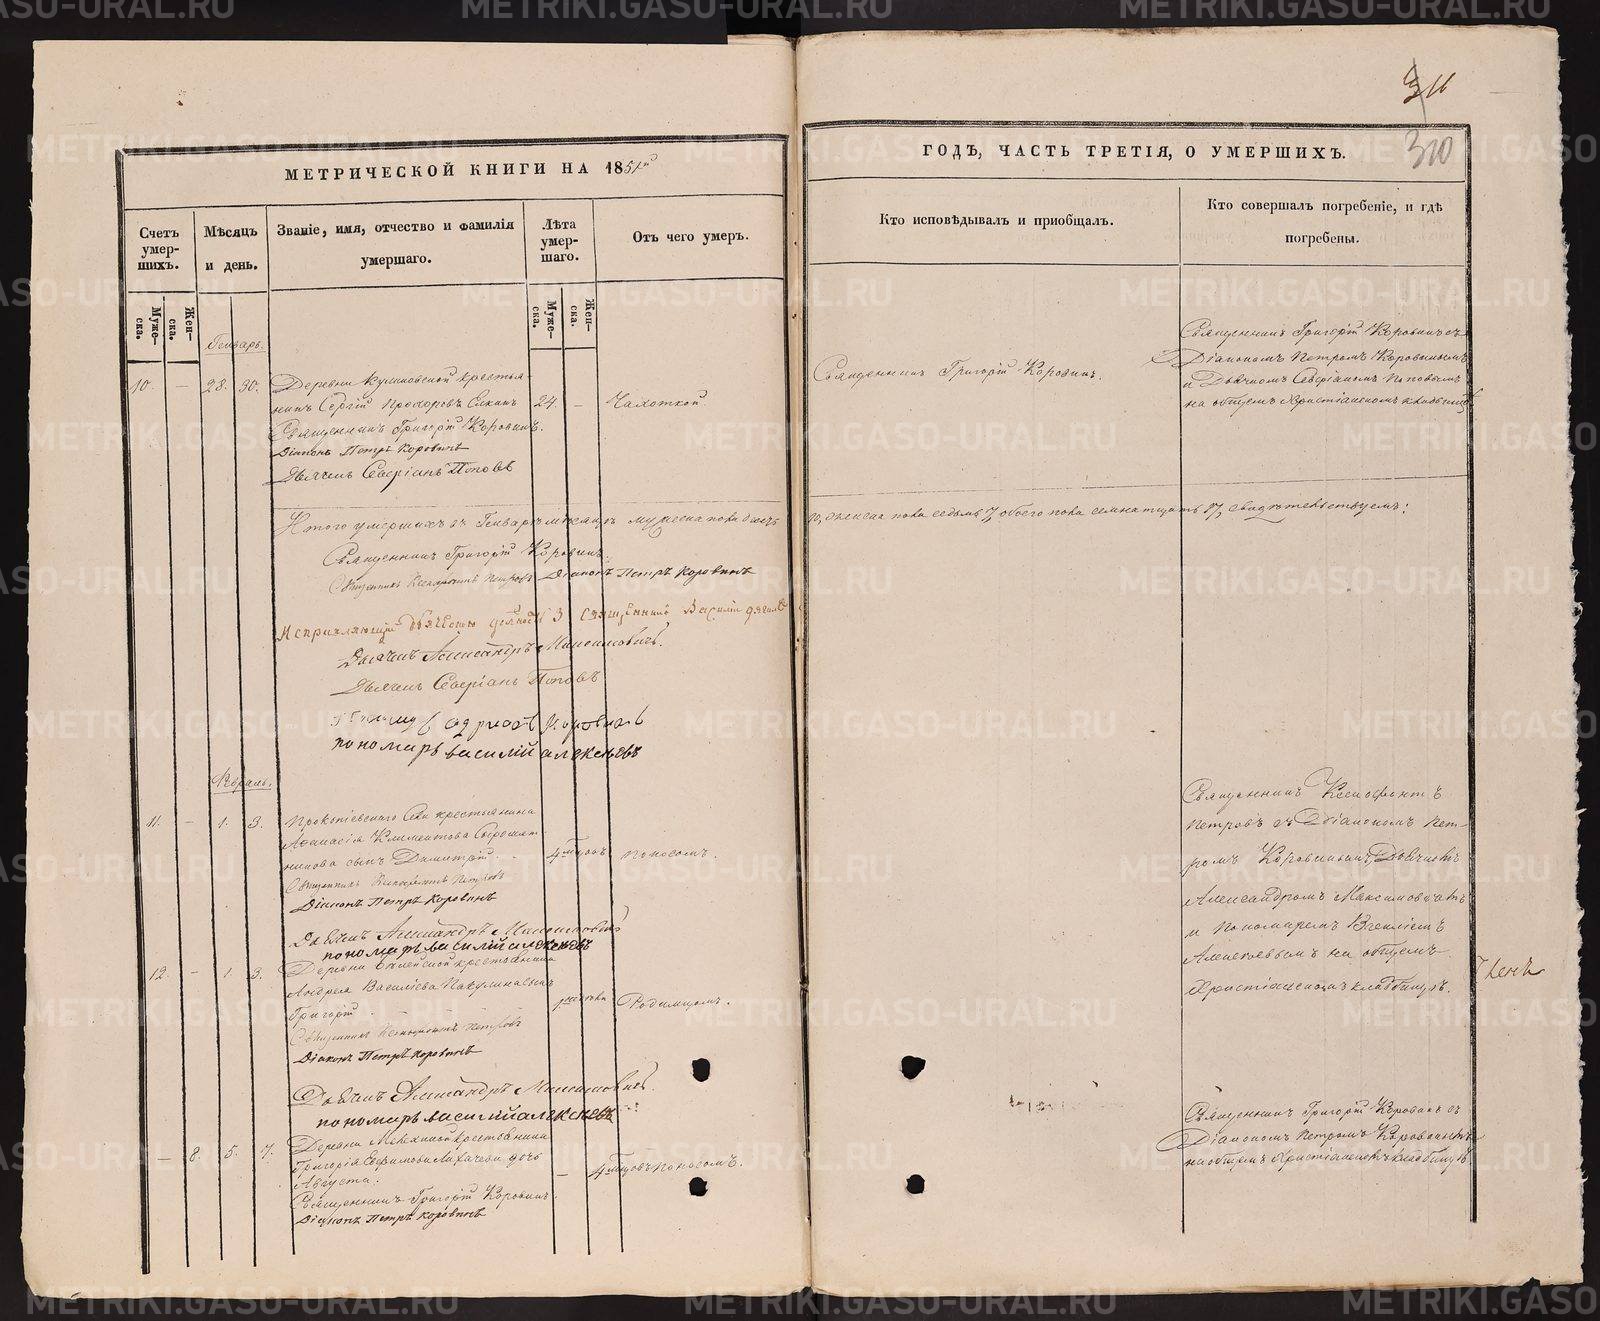 311
310
МЕТРИЧЕСКОЙ КНИГИ НА 1851й
ГОДЪ, ЧАСТЬ ТРЕТІЯ, О УМЕРШИХЪ.
Счетъ умер-шихъ.
Мѣсяцъ и день.
Званіе, имя, отчество и фамилія умершаго.
Лѣта умер-шаго.
Отъ чего умеръ.
Кто исповѣдывалъ и пріобщалъ.
Кто совершалъ погребеніе, и гдѣ погребены.
Муже-ска.
Жен-ска.
Муже-ска.
Жен-ска.
Генварь.
10. — 28. 30.
Деревни крестья-
нинъ Сергій Прохоровъ Елкинъ
24. —
Чахоткой
Священникъ Григорій Коровинъ.
Діаконъ Петръ Коровинъ
Дьячекъ Северіанъ Поповъ
Священникъ Григорій Коровинъ.
Священникъ Григорій Коровинъ съ
Діакономъ Петромъ Коровинымъ
и Дьячкомъ Северіаномъ Поповымъ
на общемъ Христіанскомъ кладбищѣ
Итого умершихъ въ Генварѣ мѣсяцѣ мужеска пола десять
10, женска пола седмь 7, обоего пола семнатцать 17, свидѣтельствуемъ:
Священникъ Григорій Коровинъ.
Священникъ Ксенофонтъ Петровъ Діаконъ Петръ Коровинъ
Исправляющій должность Священникъ Василій
Дьячекъ Александръ Максимовичъ.
Дьячекъ Северіанъ Поповъ
Коровинъ
пономарь василій алексѣевъ
Февраль.
11. — 1. 3.
Прокопіевскаго Села крестьянина
Аѳанасія Климентова
сынъ Димитрій.
4 мцовъ
Поносомъ.
Священникъ Ксенофонтъ Петровъ
Діаконъ Петръ Коровинъ
Дьячекъ Александръ Максимовичъ
пономарь василій алексѣевъ
Священникъ Ксенофонтъ
Петровъ съ Діакономъ Пет-
ромъ Коровинымъ, Дьячкомъ
Александромъ Максимовичемъ
и Пономаремъ Василіемъ
Алексѣевымъ на общемъ
Христіанскомъ кладбищѣ.
12. — 1. 3.
Деревни крестьянина
Андрея Василіева сынъ
Григорій.
Родимцомъ.
Священникъ Ксенофонтъ Петровъ
Діаконъ Петръ Коровинъ
Дьячекъ Александръ Максимовичъ
пономарь василій алексѣевъ
— 8. 5. 7.
Деревни крестьянина
Григорія Ефимова дочь
Августа.
—
4 мцовъ
Поносомъ.
Священникъ Григорій Коровинъ.
Діаконъ Петръ Коровинъ
Священникъ Григорій Коровинъ съ
Діакономъ Петромъ Коровинымъ
на общемъ Христіанскомъ кладбищѣ
METRIKI.GASO-URAL.RU